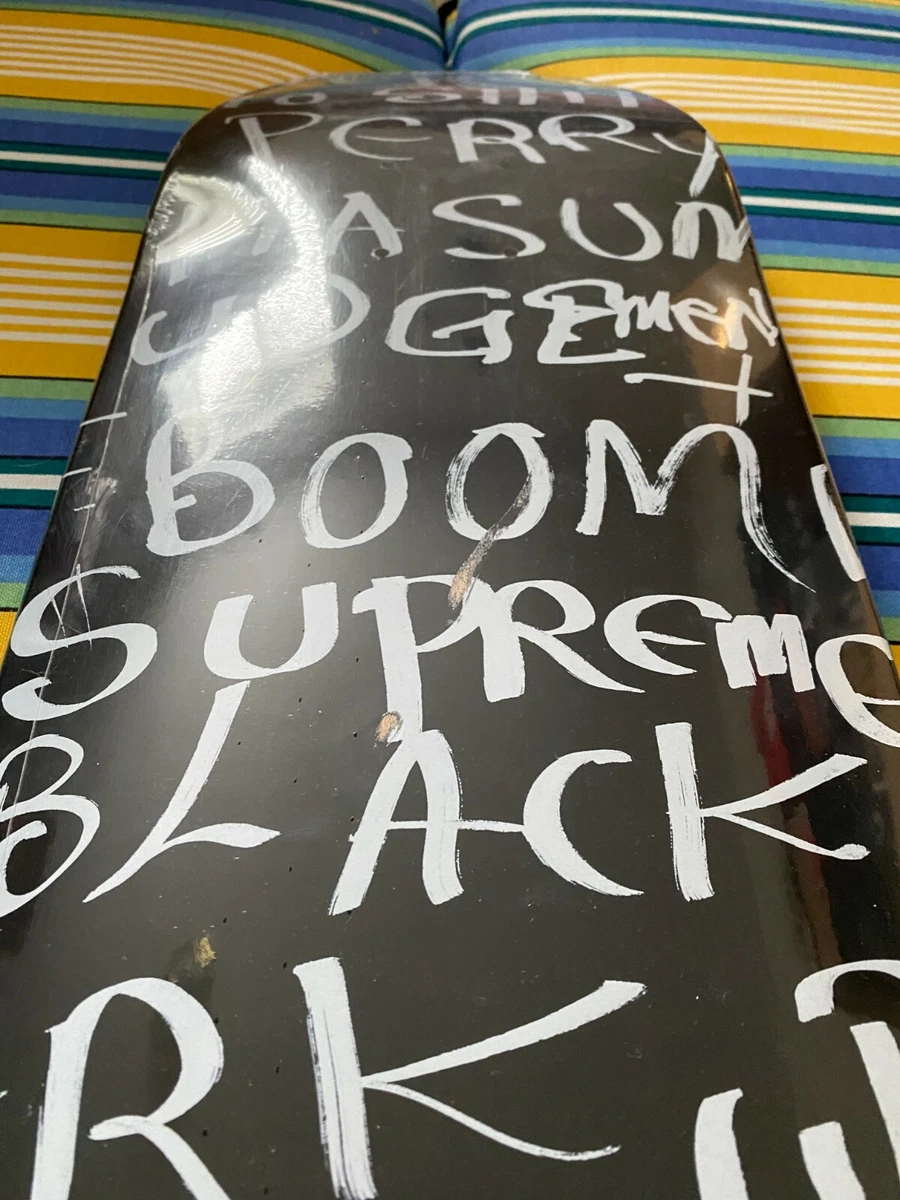 PERRY
ASUN
UDGEmeN
T
bOOM
SUPREmE
BLACK
RK